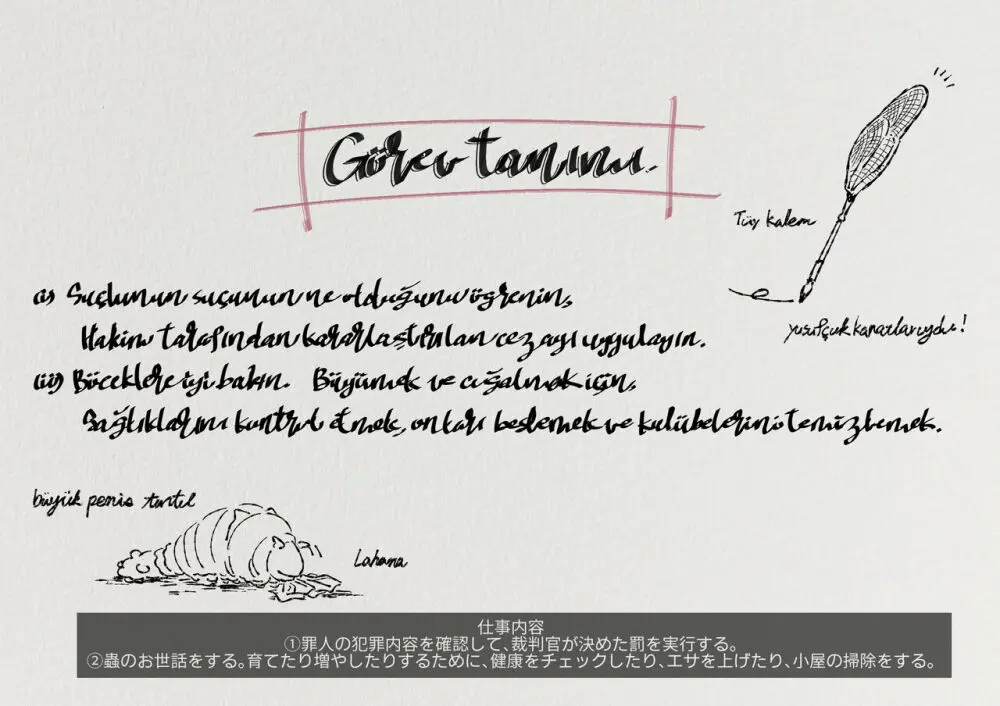 Görev tanımı.
Tüy kalem
yusufçuk kanatlarıydı!
(i) Suçlunun suçunun ne olduğunu öğrenin,
Hakim tarafından kararlaştırılan cezayı uygulayın.
(ii) Böceklere iyi bakın. Büyümek ve çoğalmak için,
Sağlıklarını kontrol etmek, onları beslemek ve kulübelerini temizlemek.
büyük penis tırtıl
Lahana
仕事内容
①罪人の犯罪内容を確認して、裁判官が決めた罰を実行する。
②蟲のお世話をする。育てたり増やしたりするために、健康をチェックしたり、エサを上げたり、小屋の掃除をする。